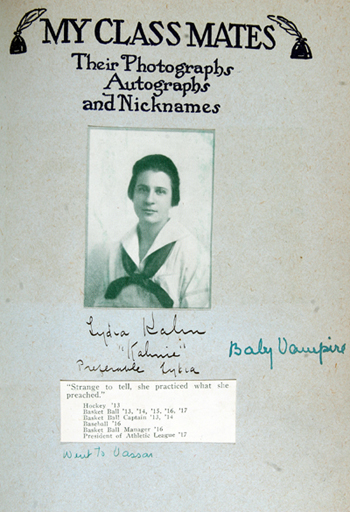 MY CLASS MATES
Their Photographs
Autographs
and Nicknames
Lydia Kahn
"Kahnie"
Preferable Lydia
Baby Vampire
"Strange to tell, she practiced what she
preached."
Hockey '13
Basket Ball '13, '14, '15, '16, '17
Basket Ball Captain '13, '14
Baseball '16
Basket Ball Manager '16
President of Athletic League '17
Went to Vassar